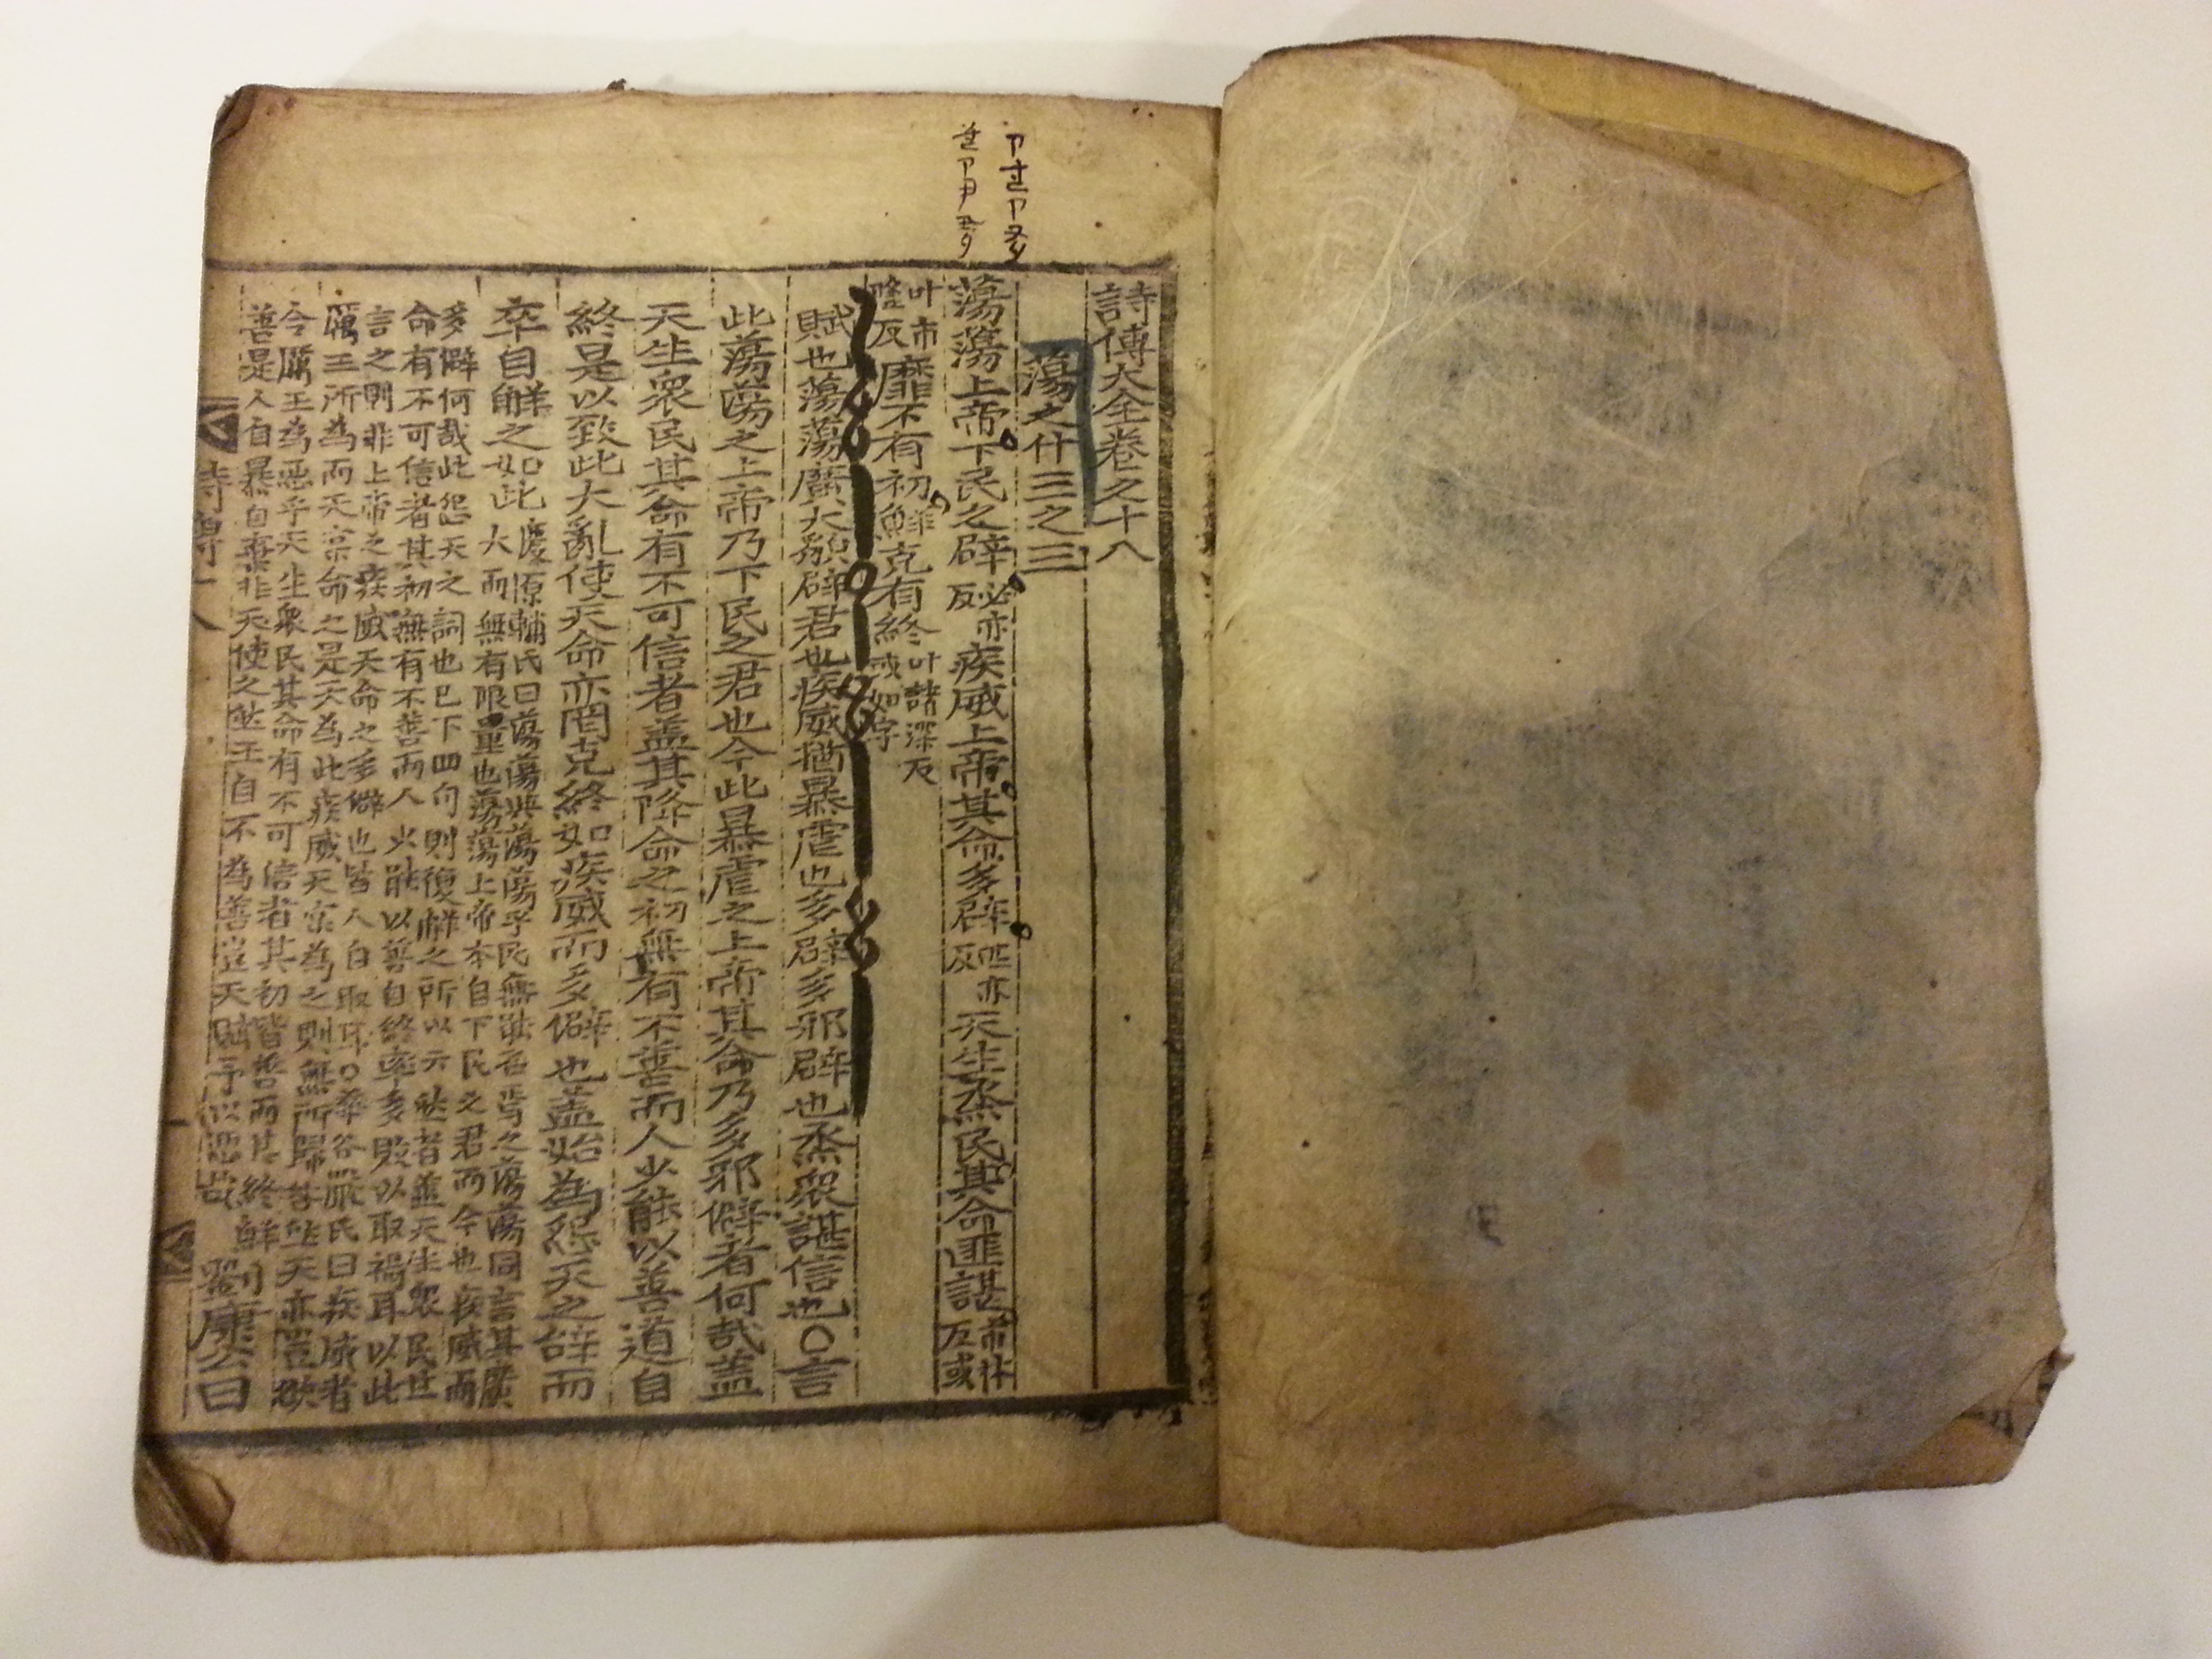 詩傳大全卷之十八
蕩之什三之三
蕩蕩上帝下民之辟必亦反疾威上帝其命多辟匹亦反天生烝民其命匪諶市林反或
叶市隆反靡不有初鮮克有終叶諸深反或如字
賦也蕩蕩廣大貌辟君也疾威猶暴虐也多辟多邪辟也烝衆諶信也○言
此蕩蕩之上帝乃下民之君也今此暴虐之上帝其命乃多邪僻者何哉盖
天生衆民其命有不可信者盖其降命之初無有不善而人少能以善道自
終是以致此大亂使天命亦罔克終如疾威而多僻也盖始為怨天之辭而
卒自解之如此慶源輔氏曰蕩蕩與蕩蕩乎民無能名焉之蕩蕩同言其廣
大而無有限量也蕩蕩上帝本自下民之君而今也疾威而
多僻何哉此怨天之詞也已下四句則復解之所以示然者盖天生衆民其
命有不可信者其初無有不善而人少能以善自終率多毁以取禍耳以此
言之則非上帝之疾威天命之多僻也皆人自取耳○華谷嚴氏曰疾威者
厲王所為而天宗命之是天為此疾威天宗為之則無所歸咎然天亦豈欲
今厲王為惡乎天生衆民其命有不可信者其初皆善而其終鮮
善是人自暴自棄非天使之然王自不為善豈天賦予以惡哉劉康公曰
詩傳十八